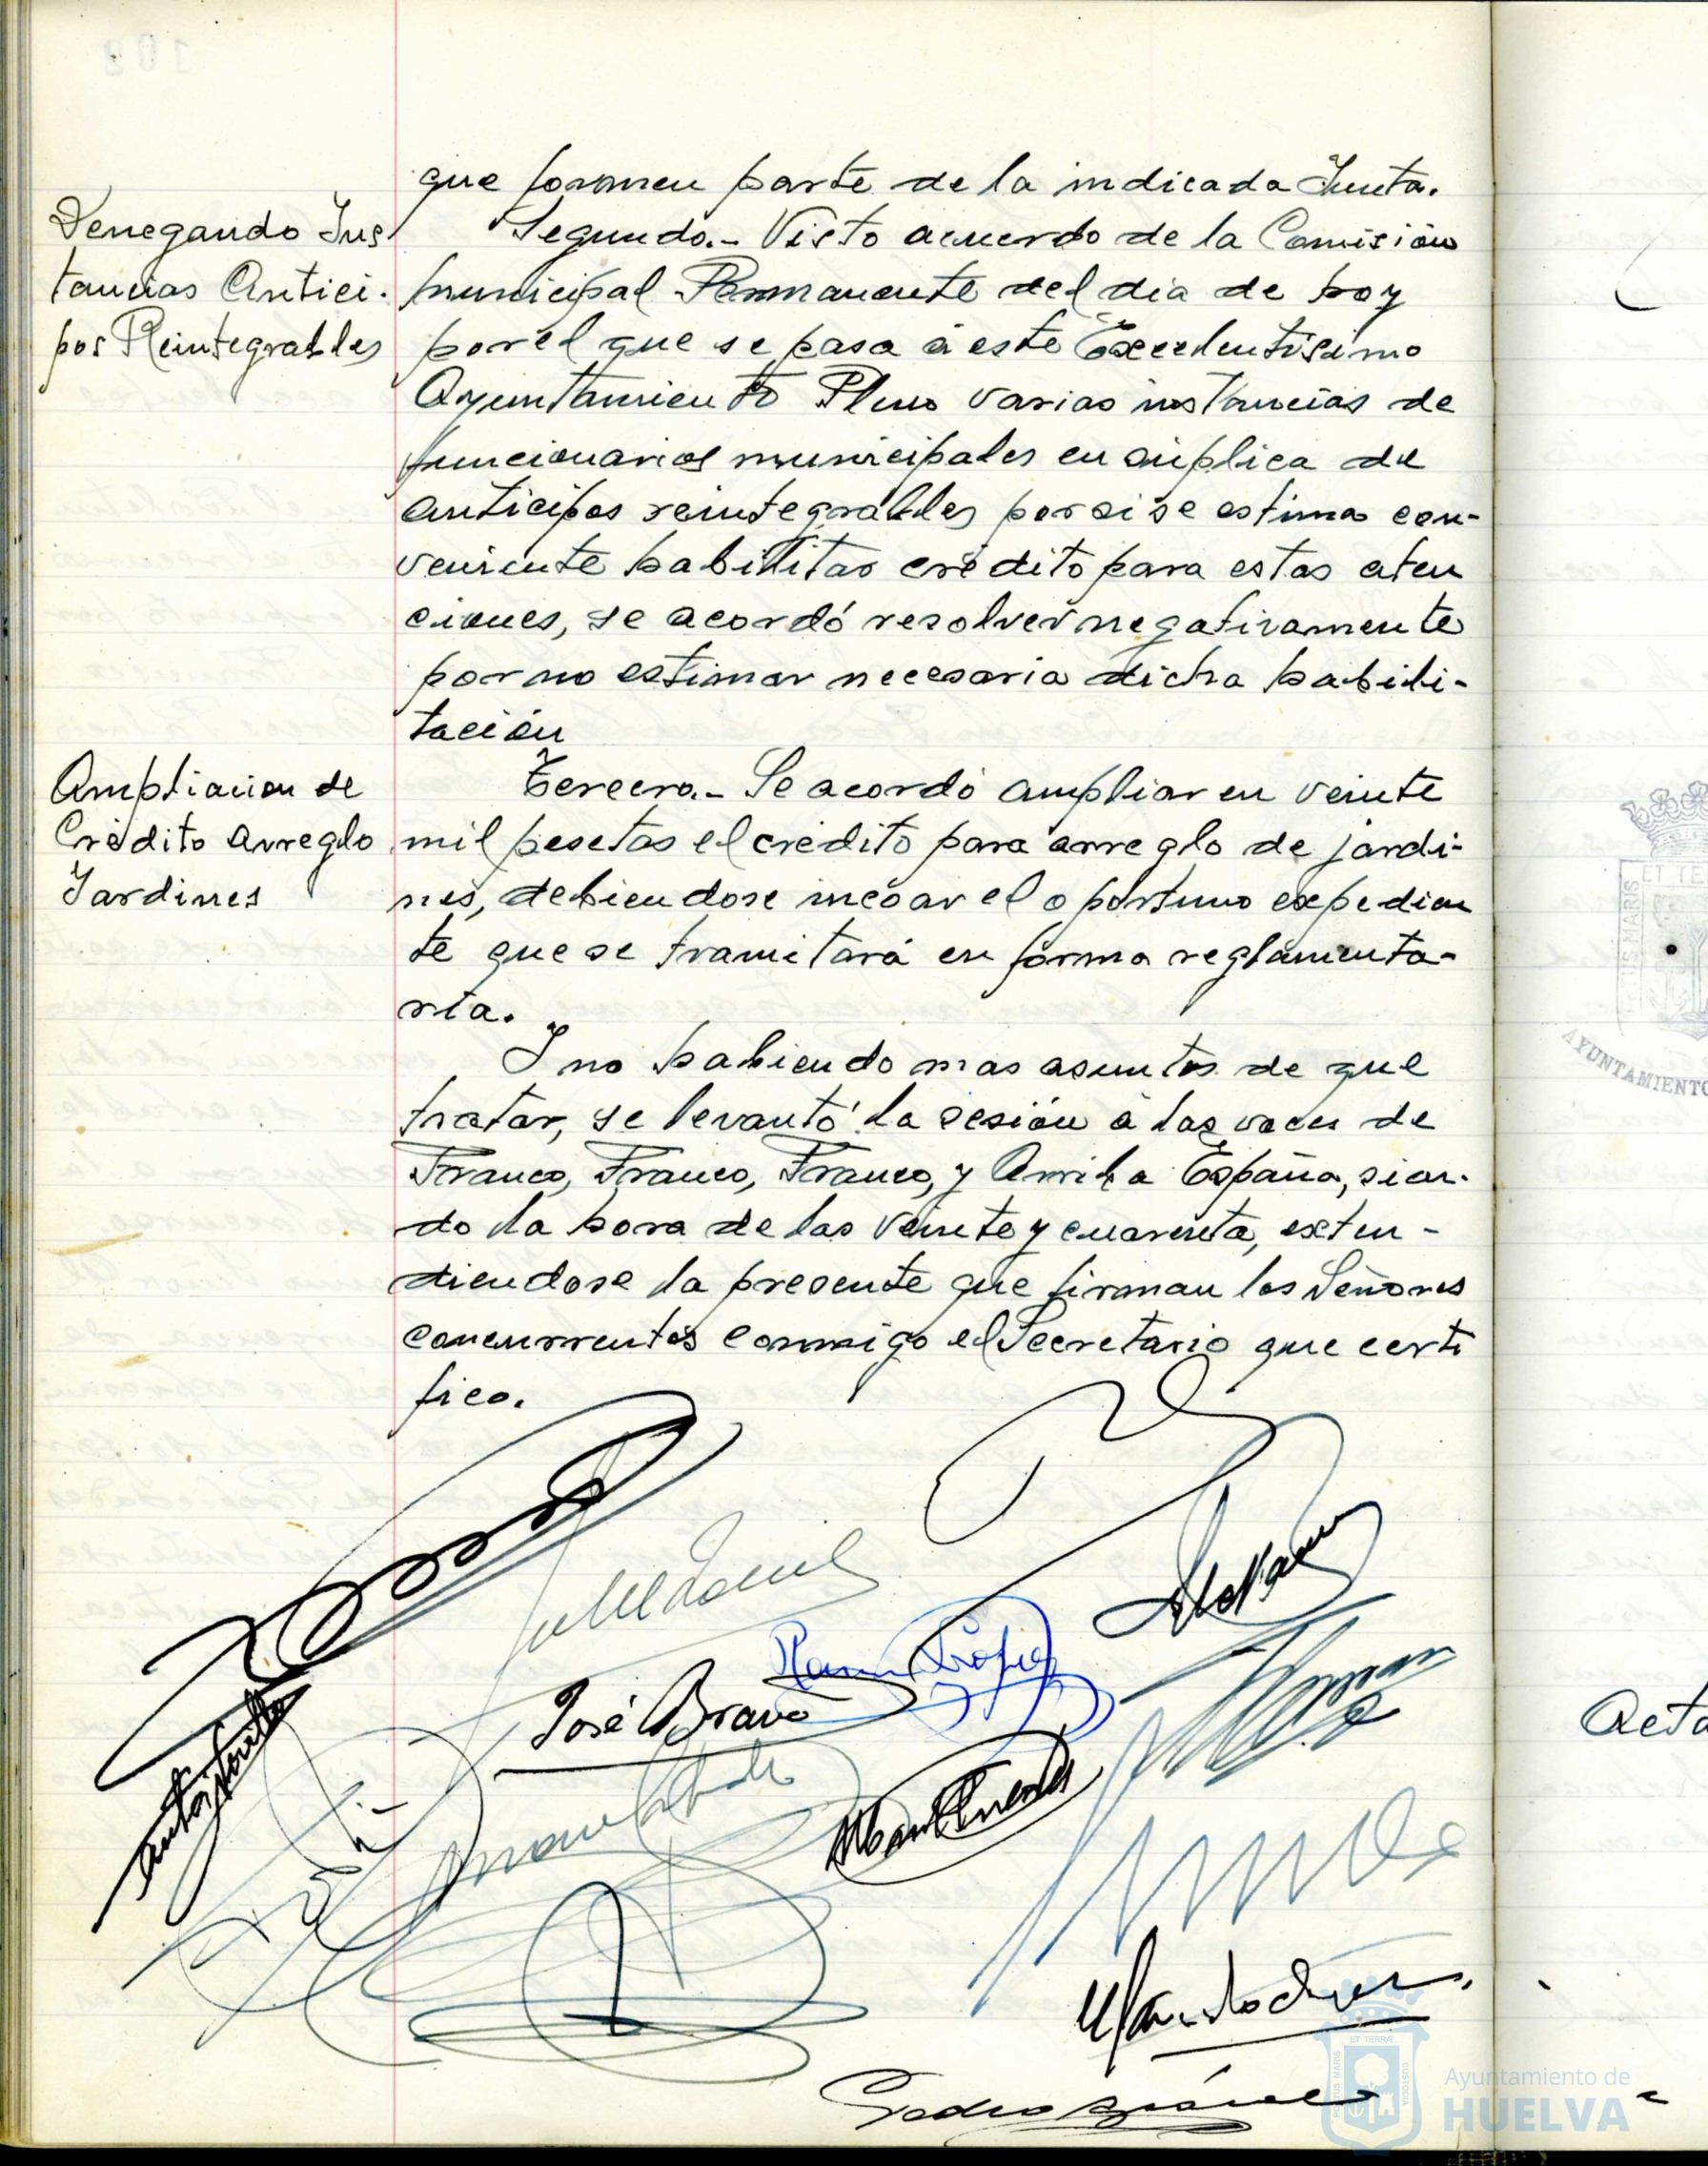 que formen parte de la indicada Junta.
Denegando Ins
tancias Antici-
pos Reintegrables
Segundo.- Visto acuerdo de la Comisión
municipal Permanente del dia de hoy
por el que se pasa á este Excelentísimo
Ayuntamiento Pleno varias instancias de
funcionarios municipales en súplica de
anticipos reintegrables por si se estima con-
veniente habilitar crédito para estas aten
ciones, se acordó resolver negativamente
por no estimar necesaria dicha habili-
tación
Ampliacion de
Crédito arreglo
Jardines
Tercero.- Se acordó ampliar en veinte
mil pesetas el crédito para arreglo de jardi-
nes, debiendose incoar el oportuno expedien
te que se tramitará en forma reglamenta-
ria.
Y no habiendo mas asuntos de que
tratar, se levantó la sesión á las voces de
Franco, Franco, Franco, y Arriba España, sien-
do la hora de las veinte y cuarenta, exten-
diendose la presente que firman los Señores
concurrentes conmigo el Secretario que certi
fico.
José Bravo
ET TERRA
AYUNTAMIENTO
Acta
Ayuntamiento de
HUELVA